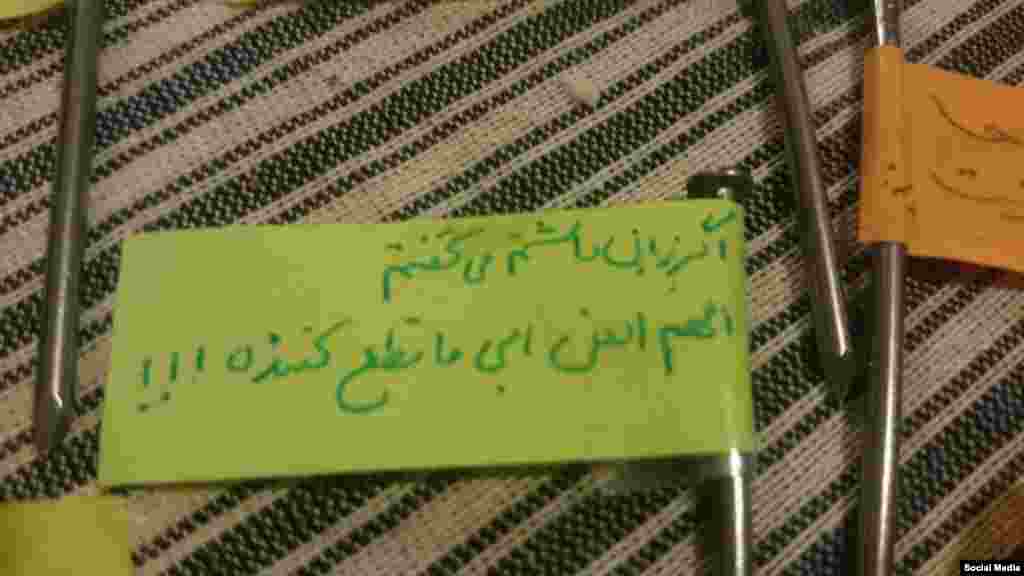 اگر زبانی داشتم می گفتم
الهم العن ابی ما قطع کننده !!!
Social Media